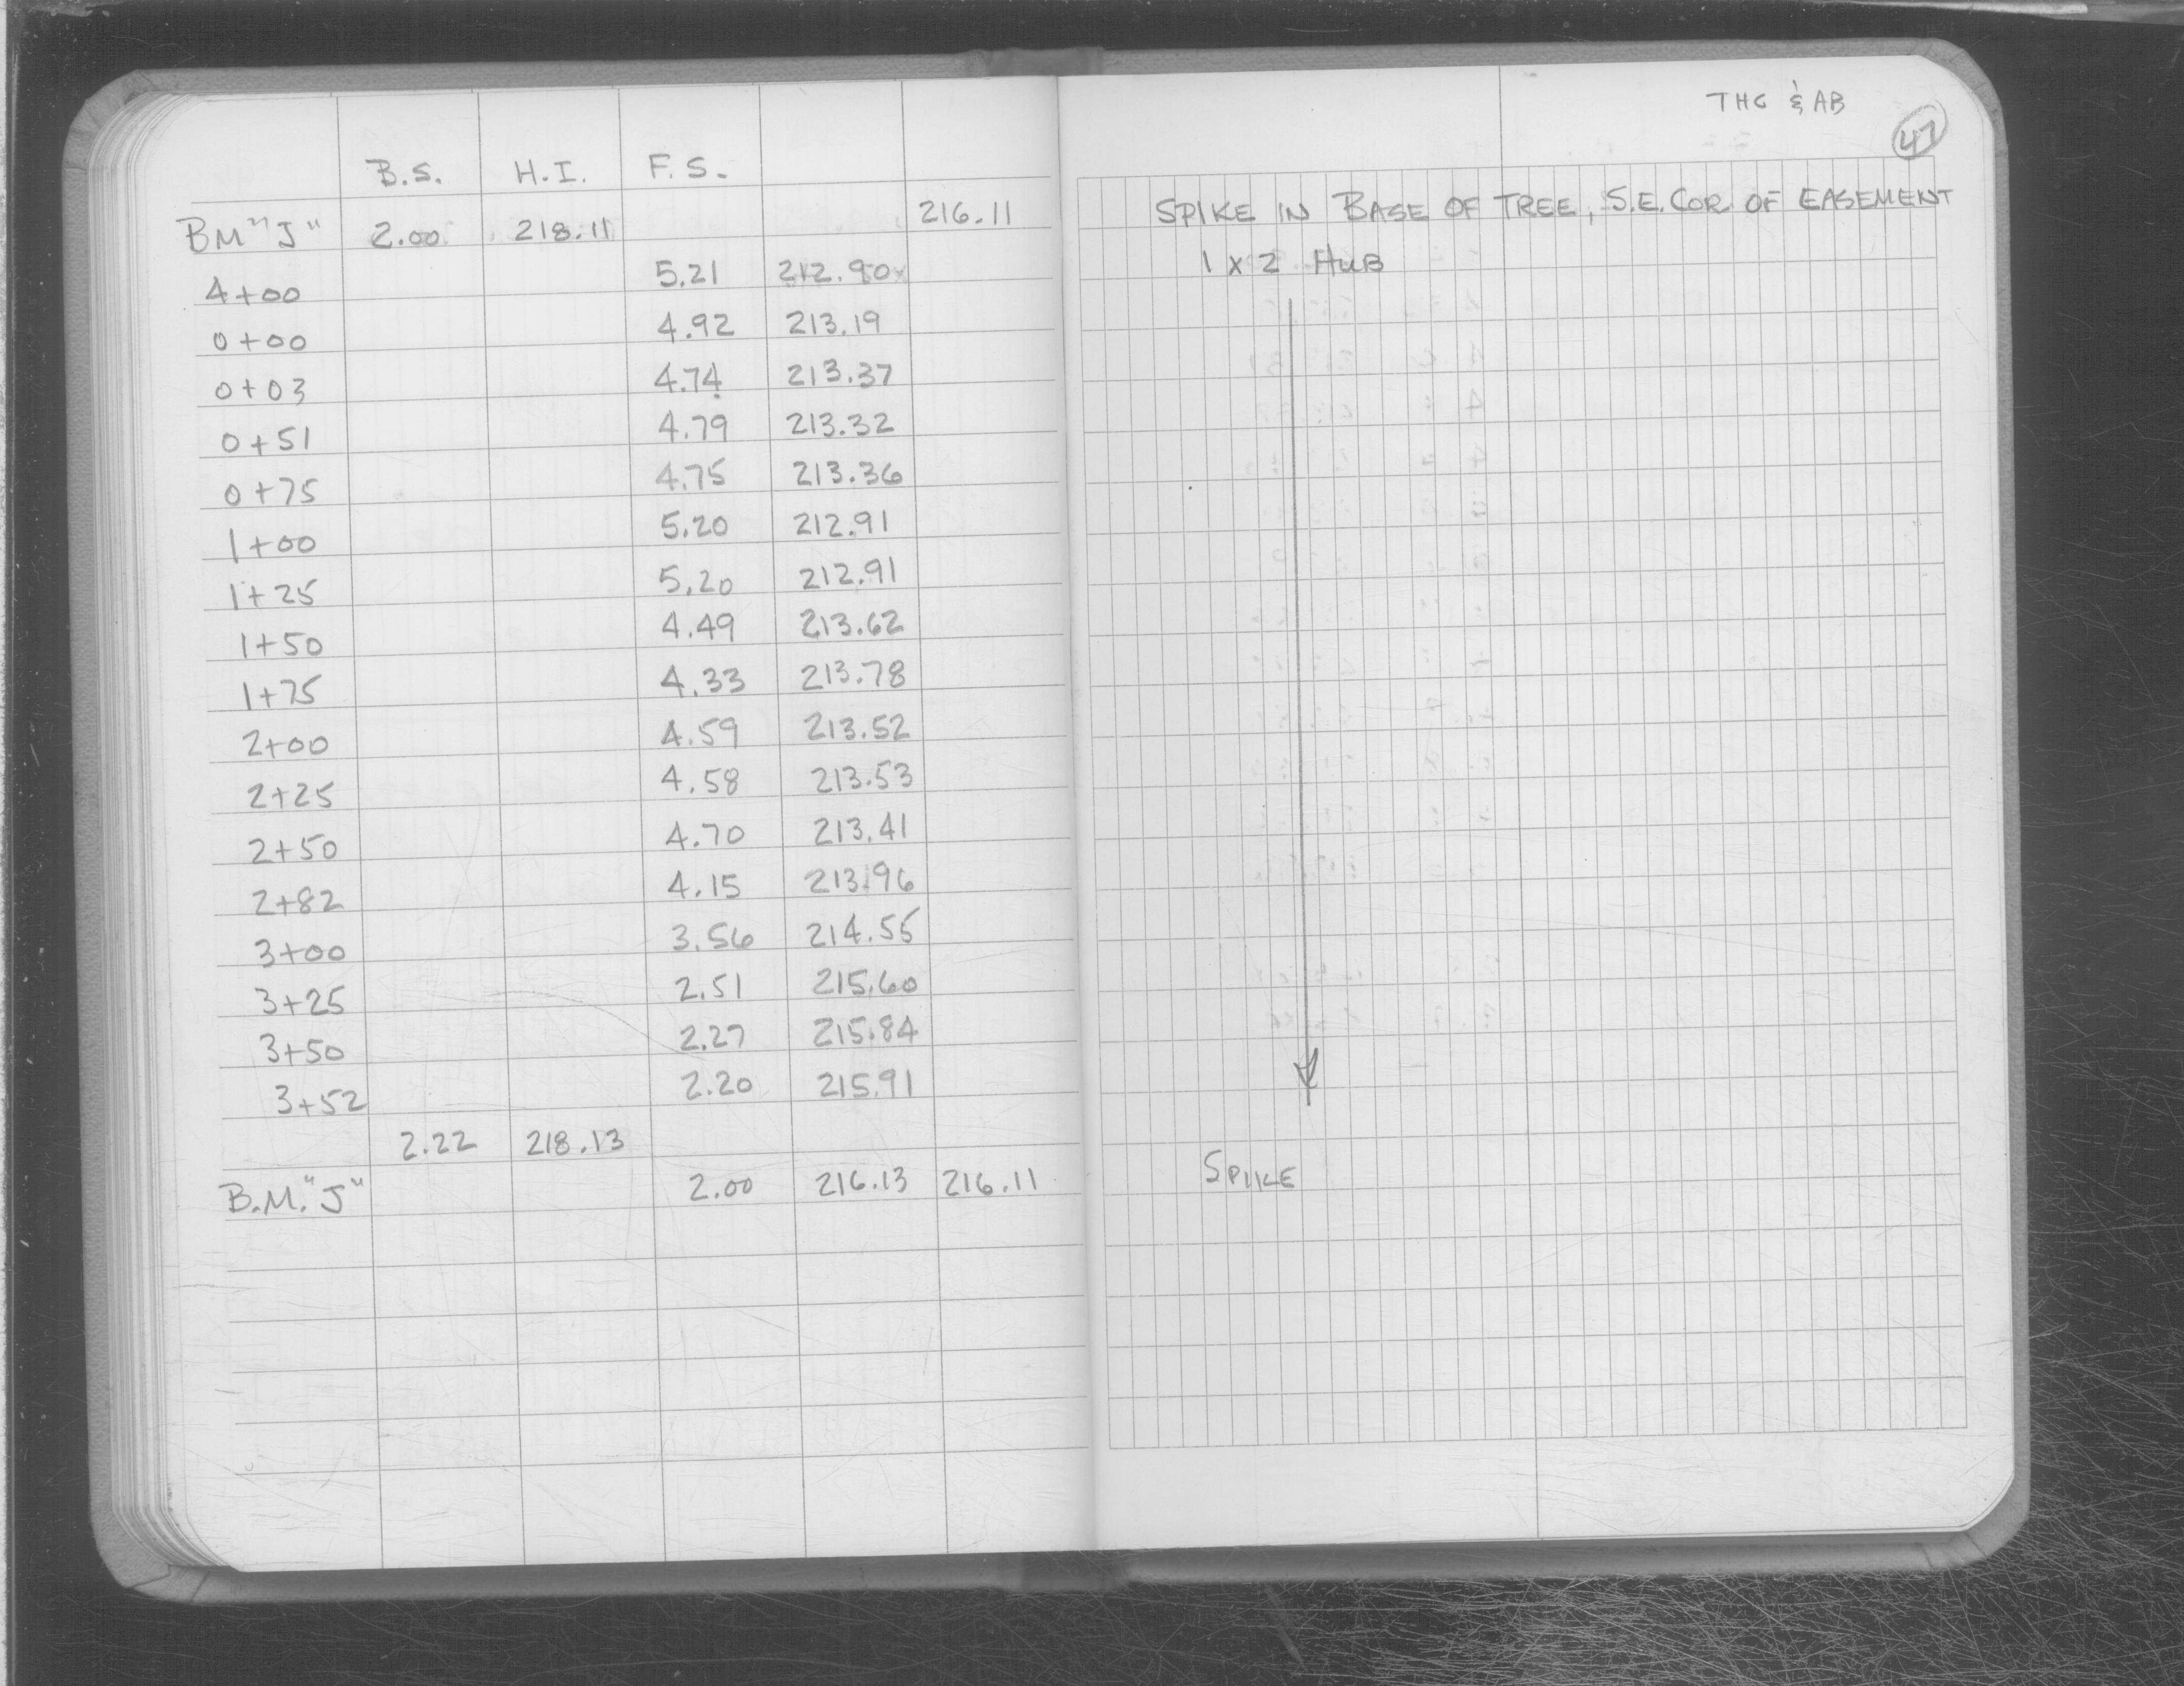 THG & AB
47
B.S. H.I. F.S.
BM "J" 2.00 218.11 216.11 SPIKE IN BASE OF TREE, S.E. COR OF EASEMENT
4+00 5.21 212.90x 1 x 2 HUB
0+00 4.92 213.19
0+03 4.74 213.37
0+51 4.79 213.32
0+75 4.75 213.36
1+00 5.20 212.91
1+25 5.20 212.91
1+50 4.49 213.62
1+75 4.33 213.78
2+00 4.59 213.52
2+25 4.58 213.53
2+50 4.70 213.41
2+82 4.15 213.96
3+00 3.56 214.55
3+25 2.51 215.60
3+50 2.27 215.84
3+52 2.20 215.91
2.22 218.13
B.M. "J" 2.00 216.13 216.11 SPIKE